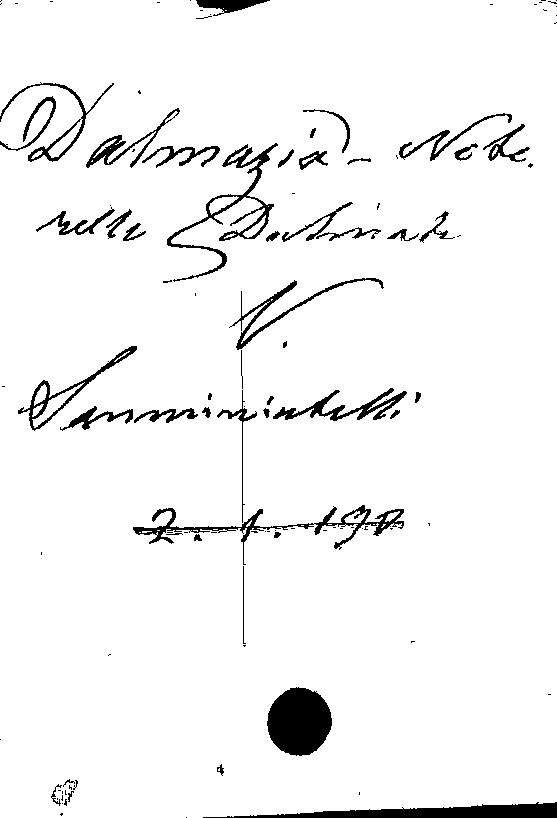 Dalmazia - Note.
nelle Dalmate
V.
Sanminiatelli
2. 1. 190